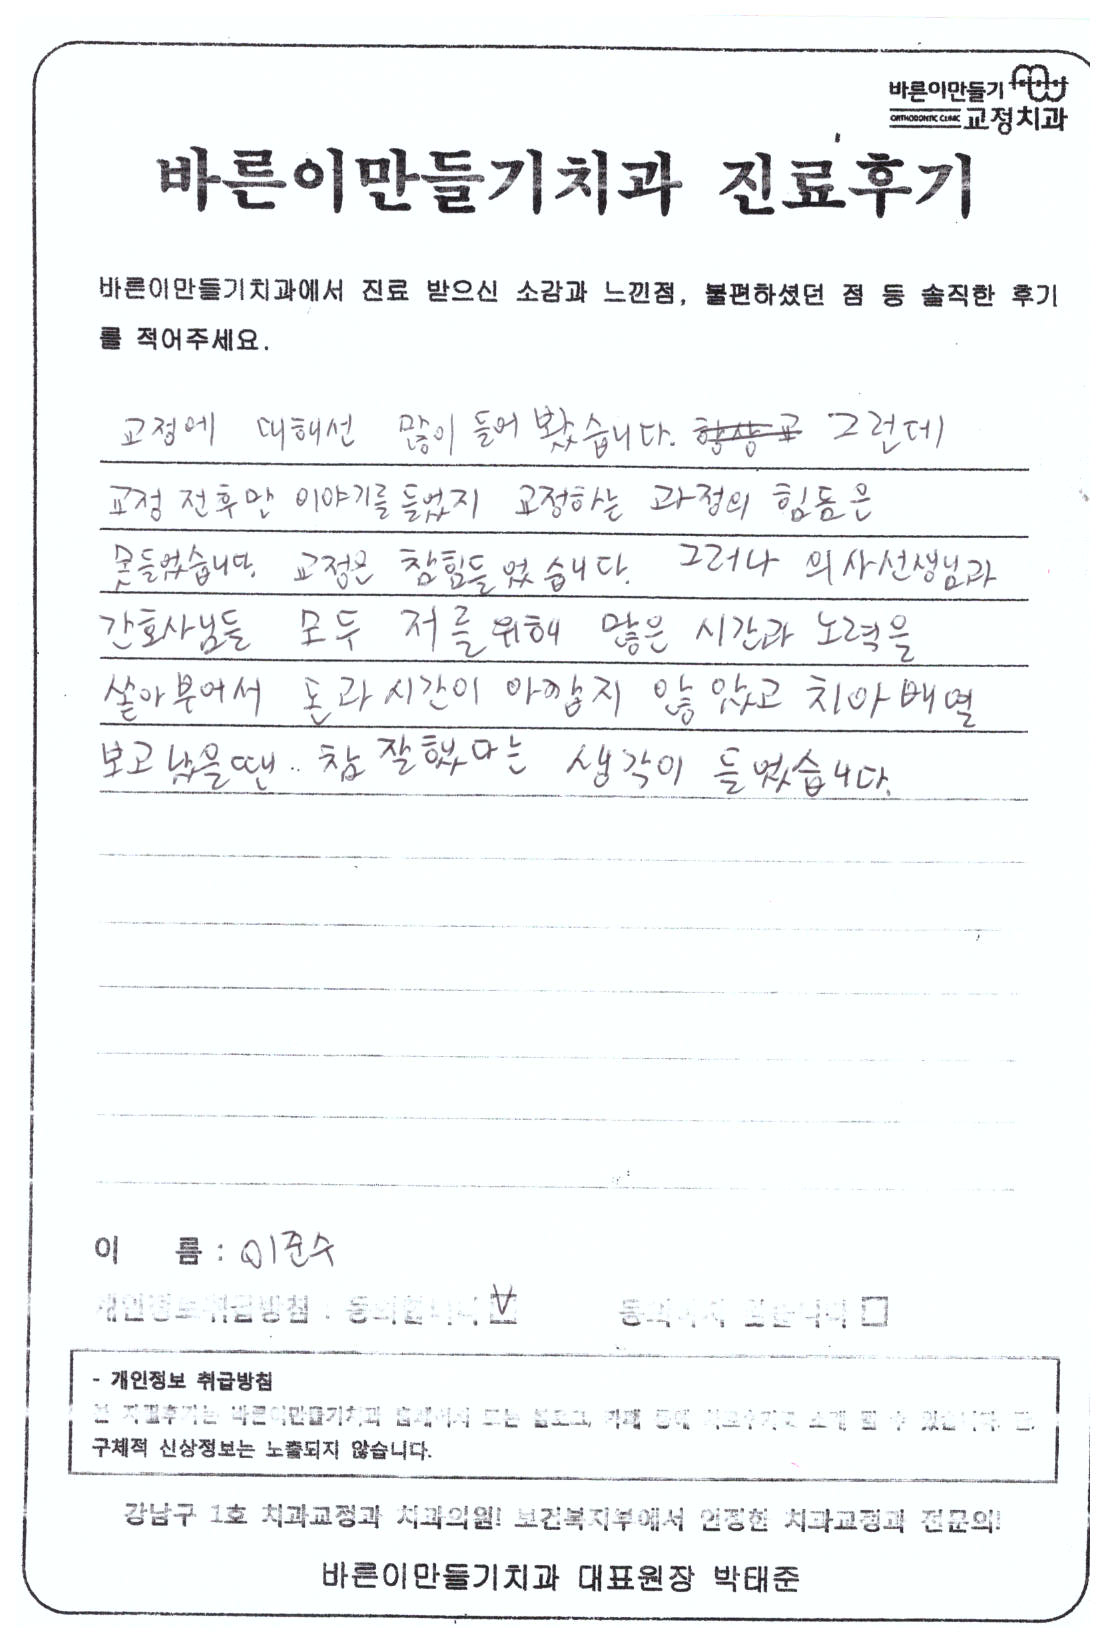 바른이만들기
ORTHODONTIC CLINIC 교정치과
바른이만들기치과 진료후기
바른이만들기치과에서 진료 받으신 소감과 느낀점, 불편하셨던 점 등 솔직한 후기
를 적어주세요.
교정에 대해선 많이 들어 봤습니다. 그런데
교정 전후만 이야기를 들었지 교정하는 과정의 힘듬은
못들었습니다. 교정은 참힘들었습니다. 그러나 의사선생님과
간호사님들 모두 저를 위해 많은 시간과 노력을
쏟아부어서 돈과 시간이 아깝지 않았고 치아배열
보고났을땐.. 참 잘했다는 생각이 들었습니다.
이 름 : 이준수
개인정보취급방침 : 동의합니다 동의하지 않습니다
- 개인정보 취급방침
본 치료후기는 바른이만들기치과 블로그, 카페 등에 소개 될 수 있습니다. 단,
구체적 신상정보는 노출되지 않습니다.
강남구 1호 치과교정과 치과의원! 보건복지부에서 인정한 치과교정과 전문의!
바른이만들기치과 대표원장 박태준